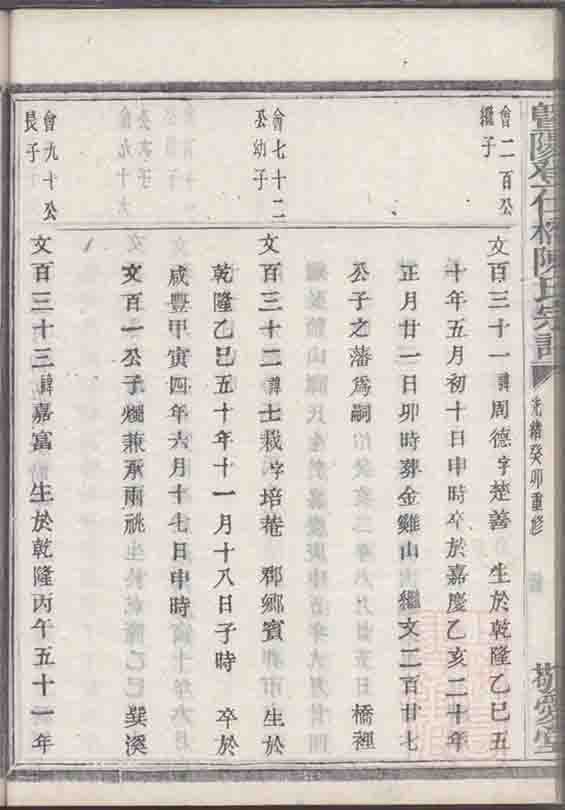 暨陽登仕橋陳氏宗譜
光緒癸卯重修
敬愛堂
會二百公
繼子
文百三十一諱周德字楚善 生於乾隆乙巳五
十年五月初十日申時卒於嘉慶乙亥二十年
正月廿一日卯時葬金雞山繼文二百廿七
公子之藩爲嗣 橋裡
會七十二
公幼子
文百三十二諱士栽字培菴 郡鄉賓 生於
乾隆乙巳五十年十一月十八日子時 卒於
咸豐甲寅四年六月十七日申時
文百一公子爛兼承兩祧 巽溪
會九十公
長子
文百三十三諱嘉富 生於乾隆丙午五十一年